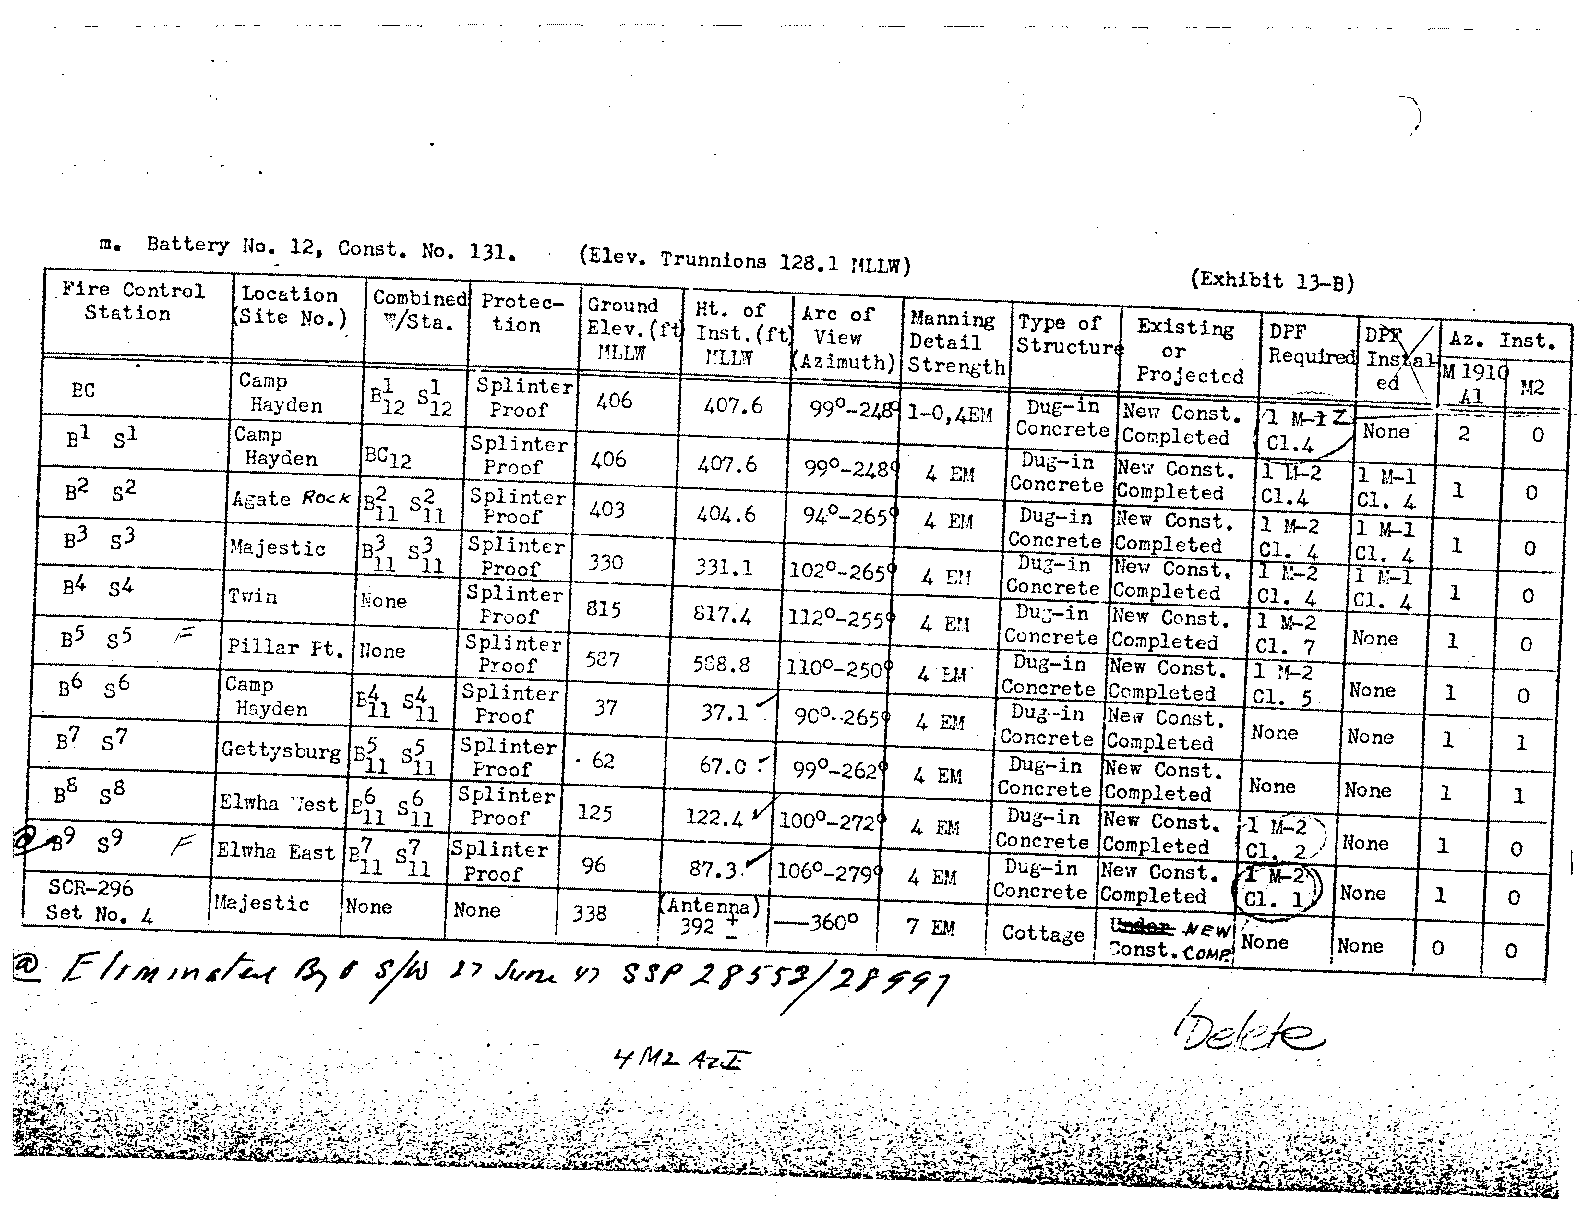 m. Battery No. 12, Const. No. 131. (Elev. Trunnions 128.1 MLLW)
(Exhibit 13-B)
Fire Control Station | Location (Site No.) | Combined w/Sta. | Protec- tion | Ground Elev.(ft) MLLW | Ht. of Inst.(ft) MLLW | Arc of View (Azimuth) | Manning Detail Strength | Type of Structure | Existing or Projected | DPF Required | DPF Instal ed | Az. Inst. M 1910 A1 | M2
BC | Camp Hayden | B¹12 S¹12 | Splinter Proof | 406 | 407.6 | 99°-248° | 1-0,4EM | Dug-in Concrete | New Const. Completed | 1 M-1 2 Cl.4 | None | 2 | 0
B¹ S¹ | Camp Hayden | BC12 | Splinter Proof | 406 | 407.6 | 99°-248° | 4 EM | Dug-in Concrete | New Const. Completed | 1 M-2 Cl.4 | 1 M-1 Cl. 4 | 1 | 0
B² S² | Agate Rock | B²11 S²11 | Splinter Proof | 403 | 404.6 | 94°-265° | 4 EM | Dug-in Concrete | New Const. Completed | 1 M-2 Cl. 4 | 1 M-1 Cl. 4 | 1 | 0
B³ S³ | Majestic | B³11 S³11 | Splinter Proof | 330 | 331.1 | 102°-265° | 4 EM | Dug-in Concrete | New Const. Completed | 1 M-2 Cl. 4 | 1 M-1 Cl. 4 | 1 | 0
B⁴ S⁴ | Twin | None | Splinter Proof | 815 | 817.4 | 112°-255° | 4 EM | Dug-in Concrete | New Const. Completed | 1 M-2 Cl. 7 | None | 1 | 0
B⁵ S⁵ F | Pillar Pt. | None | Splinter Proof | 587 | 588.8 | 110°-250° | 4 EM | Dug-in Concrete | New Const. Completed | 1 M-2 Cl. 5 | None | 1 | 0
B⁶ S⁶ | Camp Hayden | B⁴11 S⁴11 | Splinter Proof | 37 | 37.1 ✓ | 90°-265° | 4 EM | Dug-in Concrete | New Const. Completed | None | None | 1 | 1
B⁷ S⁷ | Gettysburg | B⁵11 S⁵11 | Splinter Proof | 62 | 67.0 ✓ | 99°-262° | 4 EM | Dug-in Concrete | New Const. Completed | None | None | 1 | 1
B⁸ S⁸ | Elwha West | B⁶11 S⁶11 | Splinter Proof | 125 | 122.4 ✓ | 100°-272° | 4 EM | Dug-in Concrete | New Const. Completed | 1 M-2 Cl. 2 | None | 1 | 0
@ B⁹ S⁹ F | Elwha East | B⁷11 S⁷11 | Splinter Proof | 96 | 87.3 ✓ | 106°-279° | 4 EM | Dug-in Concrete | New Const. Completed | 1 M-2 Cl. 1 | None | 1 | 0
SCR-296 Set No. 4 | Majestic | None | None | 338 | (Antenna) 392 ± | —360° | 7 EM | Cottage | Under NEW Const. COMP. | None | None | 0 | 0
@ Eliminated By S/W 27 June 47 SSP 28553/28997
Delete
4 M2 Az I